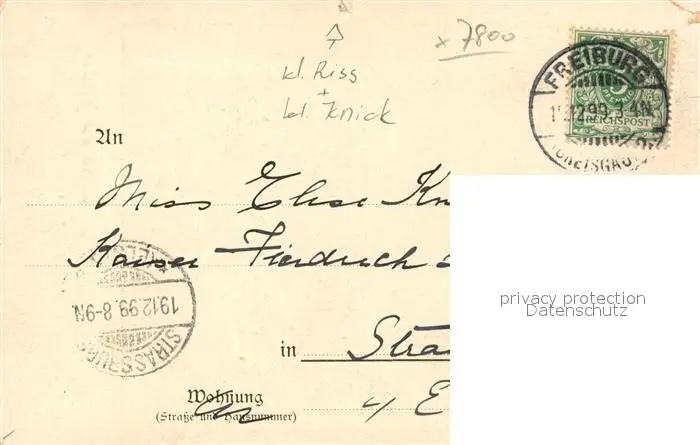 x 7800
kl. Riss
+
kl. Knick
FREIBURG
12.99. 3-4N.
REICHSPOST
(BREISGAU)
An
Miss Elise Kn
Kaiser Friedrich
privacy protection
Datenschutz
19.12.99. 8-9N.
STRASSBURG
in Stra
Wohnung
(Straße und Hausnummer)